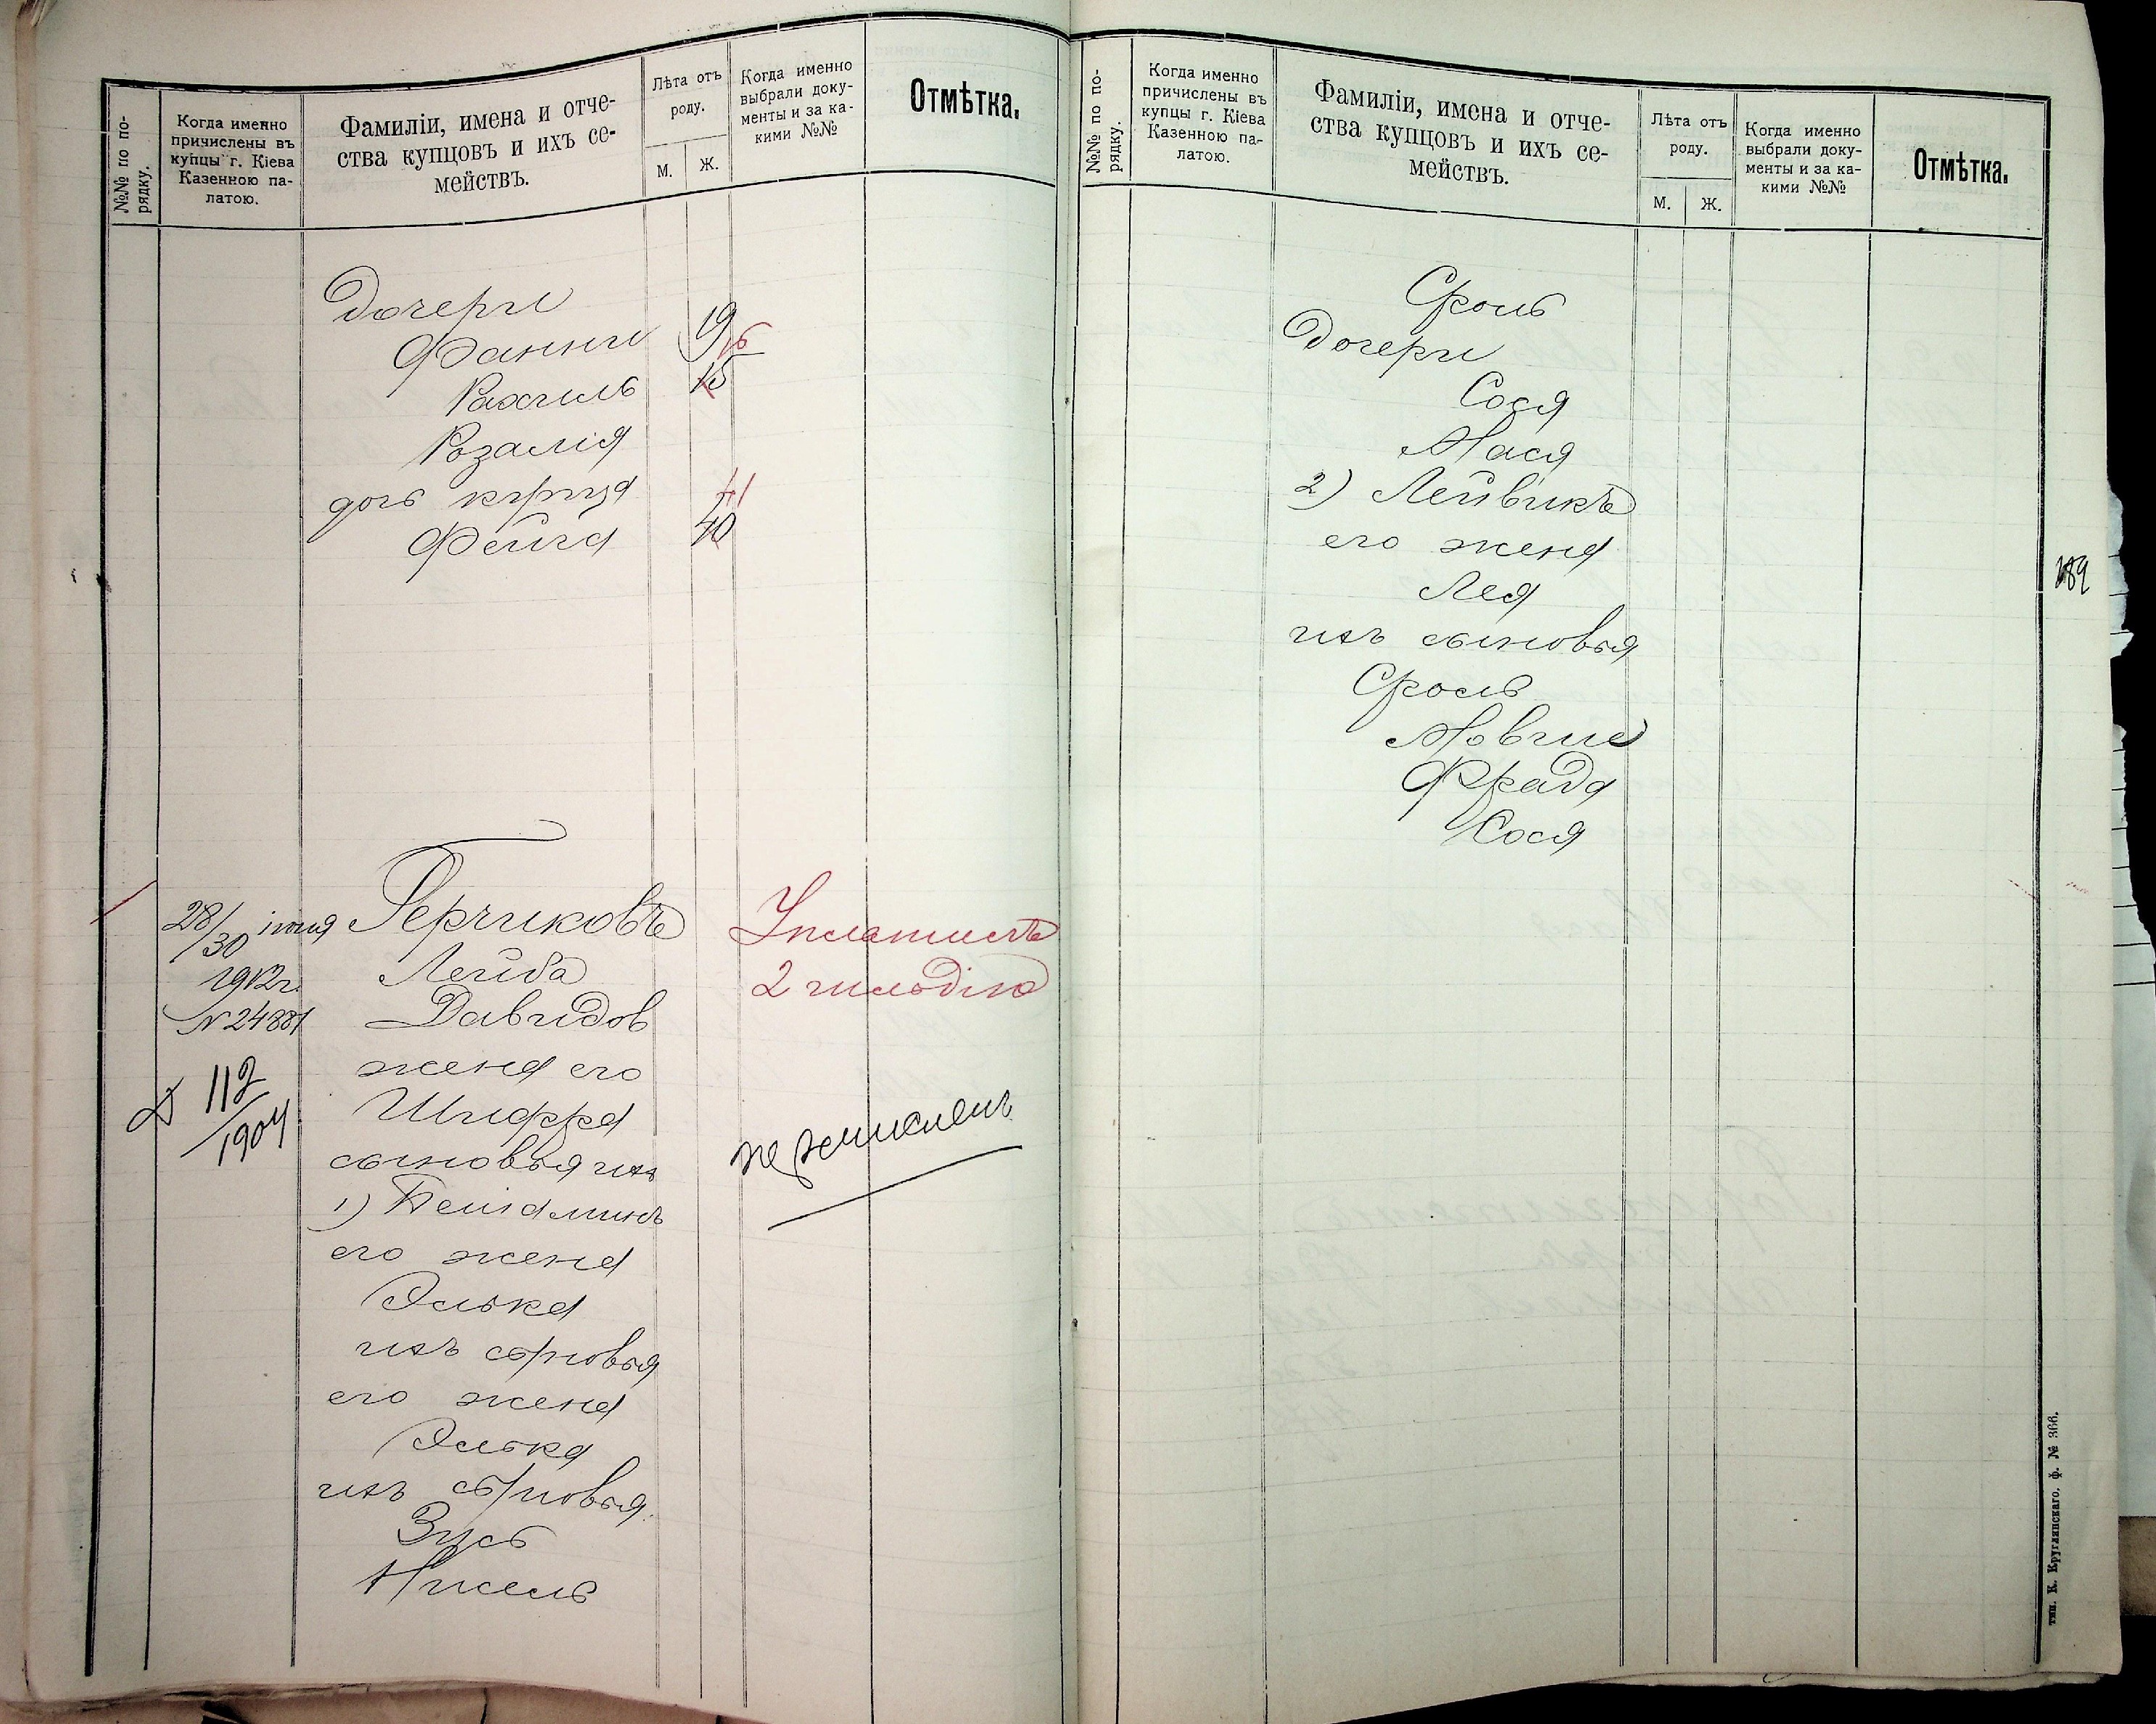 №№ по по-
рядку.
Когда именно
причислены въ
купцы г. Кіева
Казенною па-
латою.
Фамиліи, имена и отче-
ства купцовъ и ихъ се-
мействъ.
Лѣта отъ
роду.
М.
Ж.
Когда именно
выбрали доку-
менты и за ка-
кими №№
Отмѣтка.
Дочери
Фанни 19
16
Рахиль 15
Розалія
дочь купца
41
Фейга 40
28/30 іюня
1912 г.
№ 24881
112
1904
Герчиковъ
Лейба
Давидов
жена его
Шифра
сыновья ихъ
1) Беніаминъ
его жена
Элька
ихъ сыновья
его жена
Элька
ихъ сыновья
Зусь
Нисель
Уплатилъ
2 гильдію
№№ по по-
рядку.
Когда именно
причислены въ
купцы г. Кіева
Казенною па-
латою.
Фамиліи, имена и отче-
ства купцовъ и ихъ се-
мействъ.
Лѣта отъ
роду.
М.
Ж.
Когда именно
выбрали доку-
менты и за ка-
кими №№
Отмѣтка.
Сроль
Дочери
Сося
Мася
2) Лейвикъ
его жена
Лея
ихъ сыновья
Сроль
Мовше
Фрада
Сося
189
тип. К. Круглянскаго. ф. № 366.